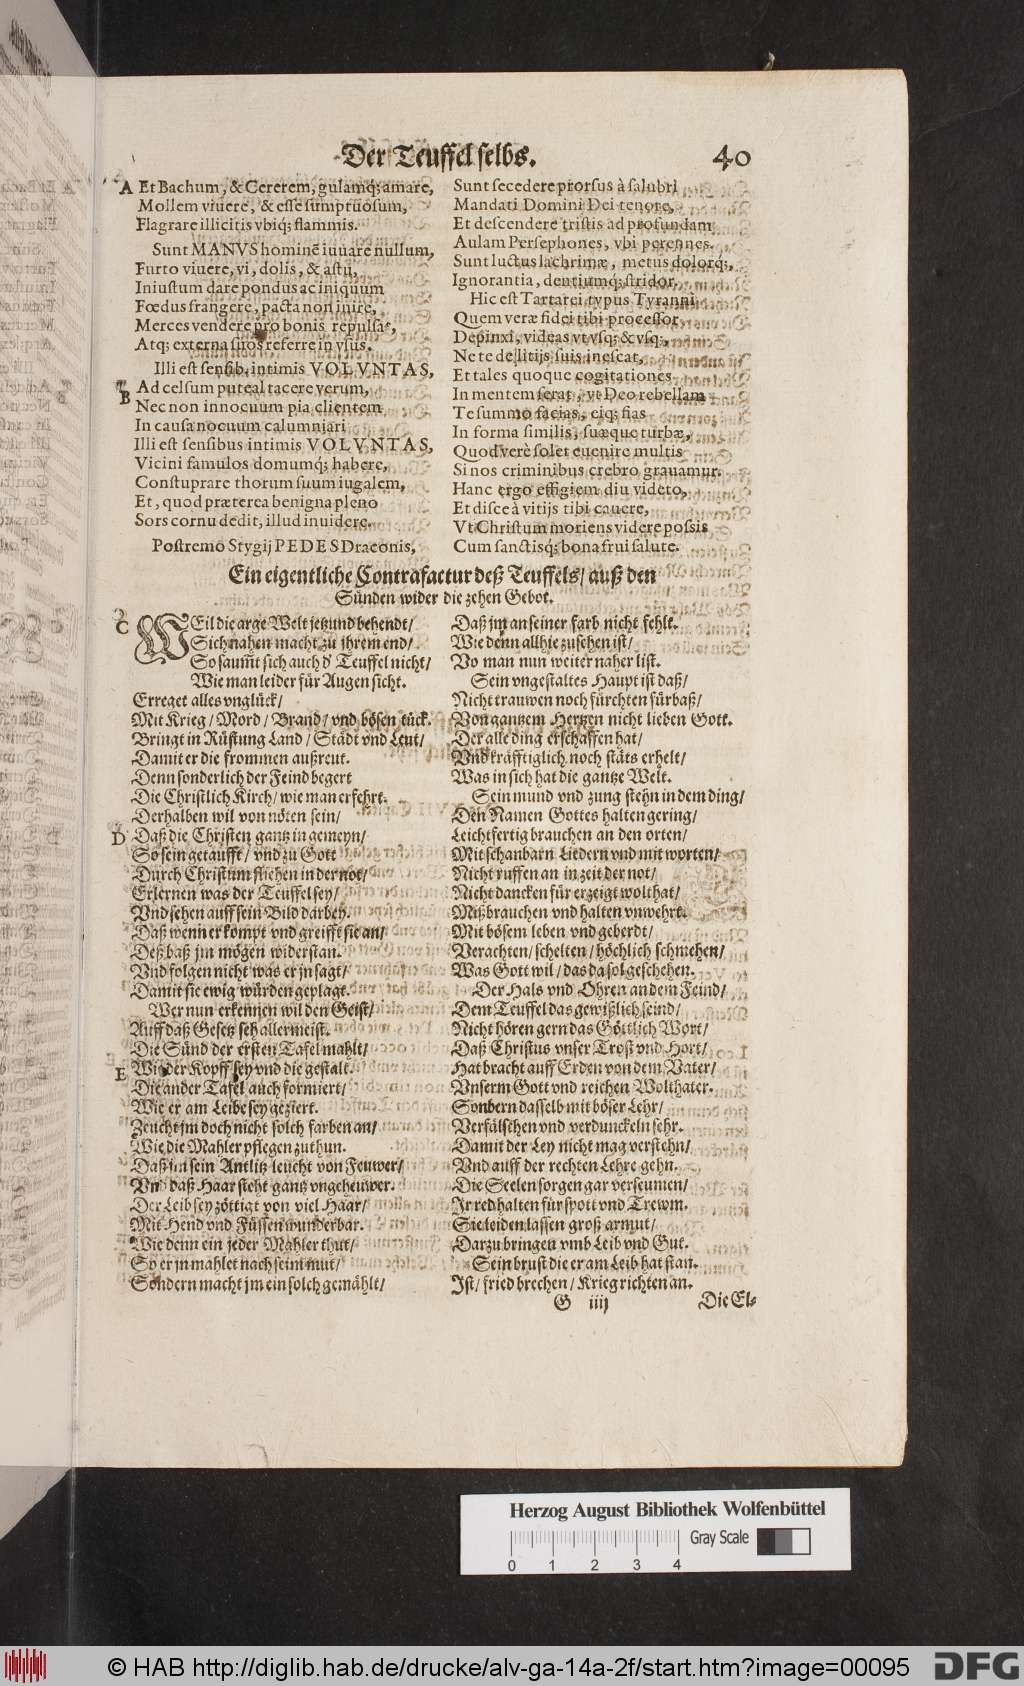 Der Teuffel selbs. 40
A Et Bachum, & Cererem, gulamq́; amare,
Mollem viuere, & esse sumptuosum,
Flagrare illicitis vbiq́; flammis.
Sunt MANVS hominē iuuare nullum,
Furto viuere, vi, dolis, & astu,
Iniustum dare pondus ac iniquum
Fœdus frangere, pacta non inire,
Merces vendere pro bonis repulsas,
Atq; externa suos referre in vsus.
Illi est sensib. intimis VOLVNTAS,
Ad celsum puteal tacere verum,
B Nec non innocuum pia clientem
In causa nocuum calumniari
Illi est sensibus intimis VOLVNTAS,
Vicini famulos domumq́; habere,
Constuprare thorum suum iugalem,
Et, quod præterea benigna pleno
Sors cornu dedit, illud inuidere.
Postremo Stygij PEDES Draconis,
Sunt secedere prorsus à salubri
Mandati Domini Dei tenore,
Et descendere tristis ad profundam
Aulam Persephones, vbi perennes.
Sunt luctus lachrimæ, metus dolorq́;,
Ignorantia, dentiumq́; stridor.
Hic est Tartarei typus Tyranni
Quem veræ fidei tibi professor
Depinxi, videas vt vsq; & vsq;,
Ne te dellitijs suis inescat,
Et tales quoque cogitationes
In mentem serat, vt Deo rebellam
Te summo facias, eiq; fias
In forma similis, suæque turbæ,
Quod verè solet euenire multis
Si nos criminibus crebro grauamur.
Hanc ergo effigiem diu videto,
Et disce à vitijs tibi cauere,
Vt Christum moriens videre possis
Cum sanctisq; bona frui salute.
Ein eigentliche Contrafactur deß Teuffels/ auß den
Sünden wider die zehen Gebot.
C WEil die arge Welt jetzund behendt/
Sich nahen macht zu jhrem end/
So saumt sich auch d' Teuffel nicht/
Wie man leider für Augen sicht.
Erreget alles vnglück/
Mit Krieg/ Mord/ Brand/ vnd bösen tück.
Bringt in Rüstung Land/ Städt vnd Leut/
Damit er die frommen außreut.
Denn sonderlich der Feind begert
Die Christlich Kirch/ wie man erfehrt.
Derhalben wil von nöten sein/
D Daß die Christen gantz in gemeyn/
So sein getaufft/ vnd zu Gott
Durch Christum fliehen in der not/
Erlernen was der Teuffel sey/
Vnd sehen auff sein Bild darbey.
Daß wenn er kompt vnd greifft sie an/
Deß baß jm mögen widerstan.
Vnd folgen nicht was er jn sagt/
Damit sie ewig würden geplagt.
Wer nun erkennen wil den Geist/
Auff daß Gesetz seh allermeist.
Die Sünd der ersten Tafel mahlt/
E Wie der Kopff sey vnd die gestalt.
Die ander Tafel auch formiert/
Wie er am Leibe sey geziert.
Zeucht jm doch nicht solch farben an/
Wie die Mahler pflegen zuthun.
Daß jm sein Antlitz leucht von Feuwer/
Vnd daß Haar steht gantz vngeheuwer.
Der Leib sey zöttigt von viel Haar/
Mit Hend vnd Füssen wunderbar.
Wie denn ein jeder Mahler thut/
So er jn mahlet nach seim mut/
Sondern macht jm ein solch gemählt/
Daß jm an seiner farb nicht fehlt.
Wie denn allhie zusehen ist/
Vo man nun weiter naher list.
Sein vngestaltes Haupt ist daß/
Nicht trauwen noch fürchten fürbaß/
Von gantzem Hertzen nicht lieben Gott.
Der alle ding erschaffen hat/
Vnd kräfftiglich noch stäts erhelt/
Was in sich hat die gantze Welt.
Sein mund vnd zung stehn in dem ding/
Den Namen Gottes halten gering/
Leichtfertig brauchen an den orten/
Mit schanbarn Liedern vnd mit worten/
Nicht ruffen an in zeit der not/
Nicht dancken für erzeigt wolthat/
Mißbrauchen vnd halten vnwehrt.
Mit bösem leben vnd geberdt/
Verachten/ schelten/ höchlich schmehen/
Was Gott wil/ das da sol geschehen.
Der Hals vnd Ohren an dem Feind/
Dem Teuffel das gewißlich seind/
Nicht hören gern das Göttlich Wort/
Daß Christus vnser Trost vnd Hort/
Hat bracht auff Erden von dem Vater/
Vnserm Gott vnd reichen Wolthater.
Sondern dasselb mit böser Lehr/
Verfälschen vnd verdunckeln sehr.
Damit der Ley nicht mag verstehn/
Vnd auff der rechten Lehre gehn.
Die Seelensorgen gar verseumen/
Jr red halten für spott vnd Trewm.
Sie leiden lassen groß armut/
Darzu bringen vmb Leib vnd Gut.
Sein brust die er am Leib hat stan.
Ist/ fried brechen/ Krieg richten an.
G iiij Die El-
Herzog August Bibliothek Wolfenbüttel
Gray Scale
0 1 2 3 4
© HAB http://diglib.hab.de/drucke/alv-ga-14a-2f/start.htm?image=00095
DFG